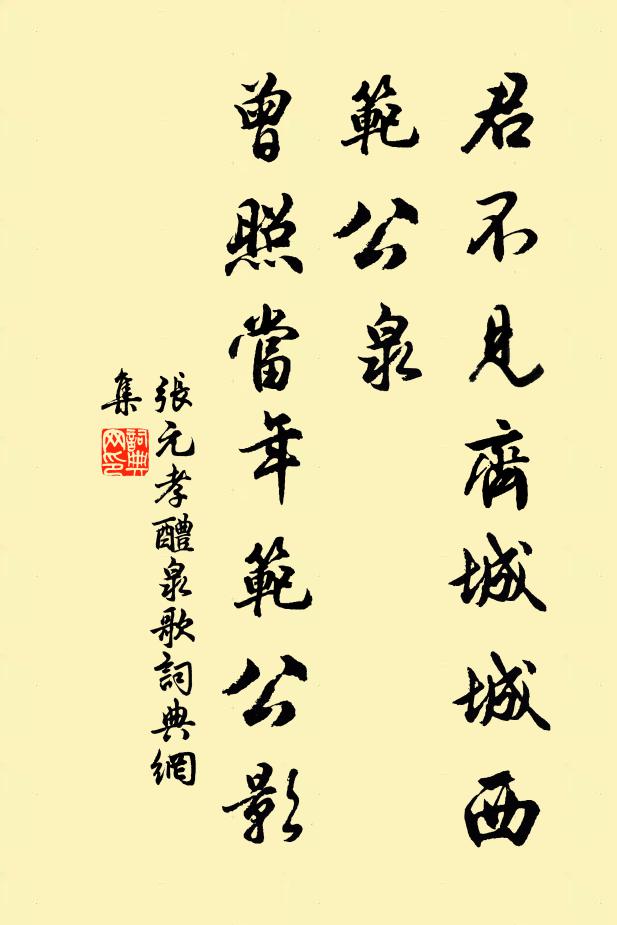 君不見齊城城西
範公泉
曾照當年範公影
張元孝醴泉歌詞典網
集
詞典
网印